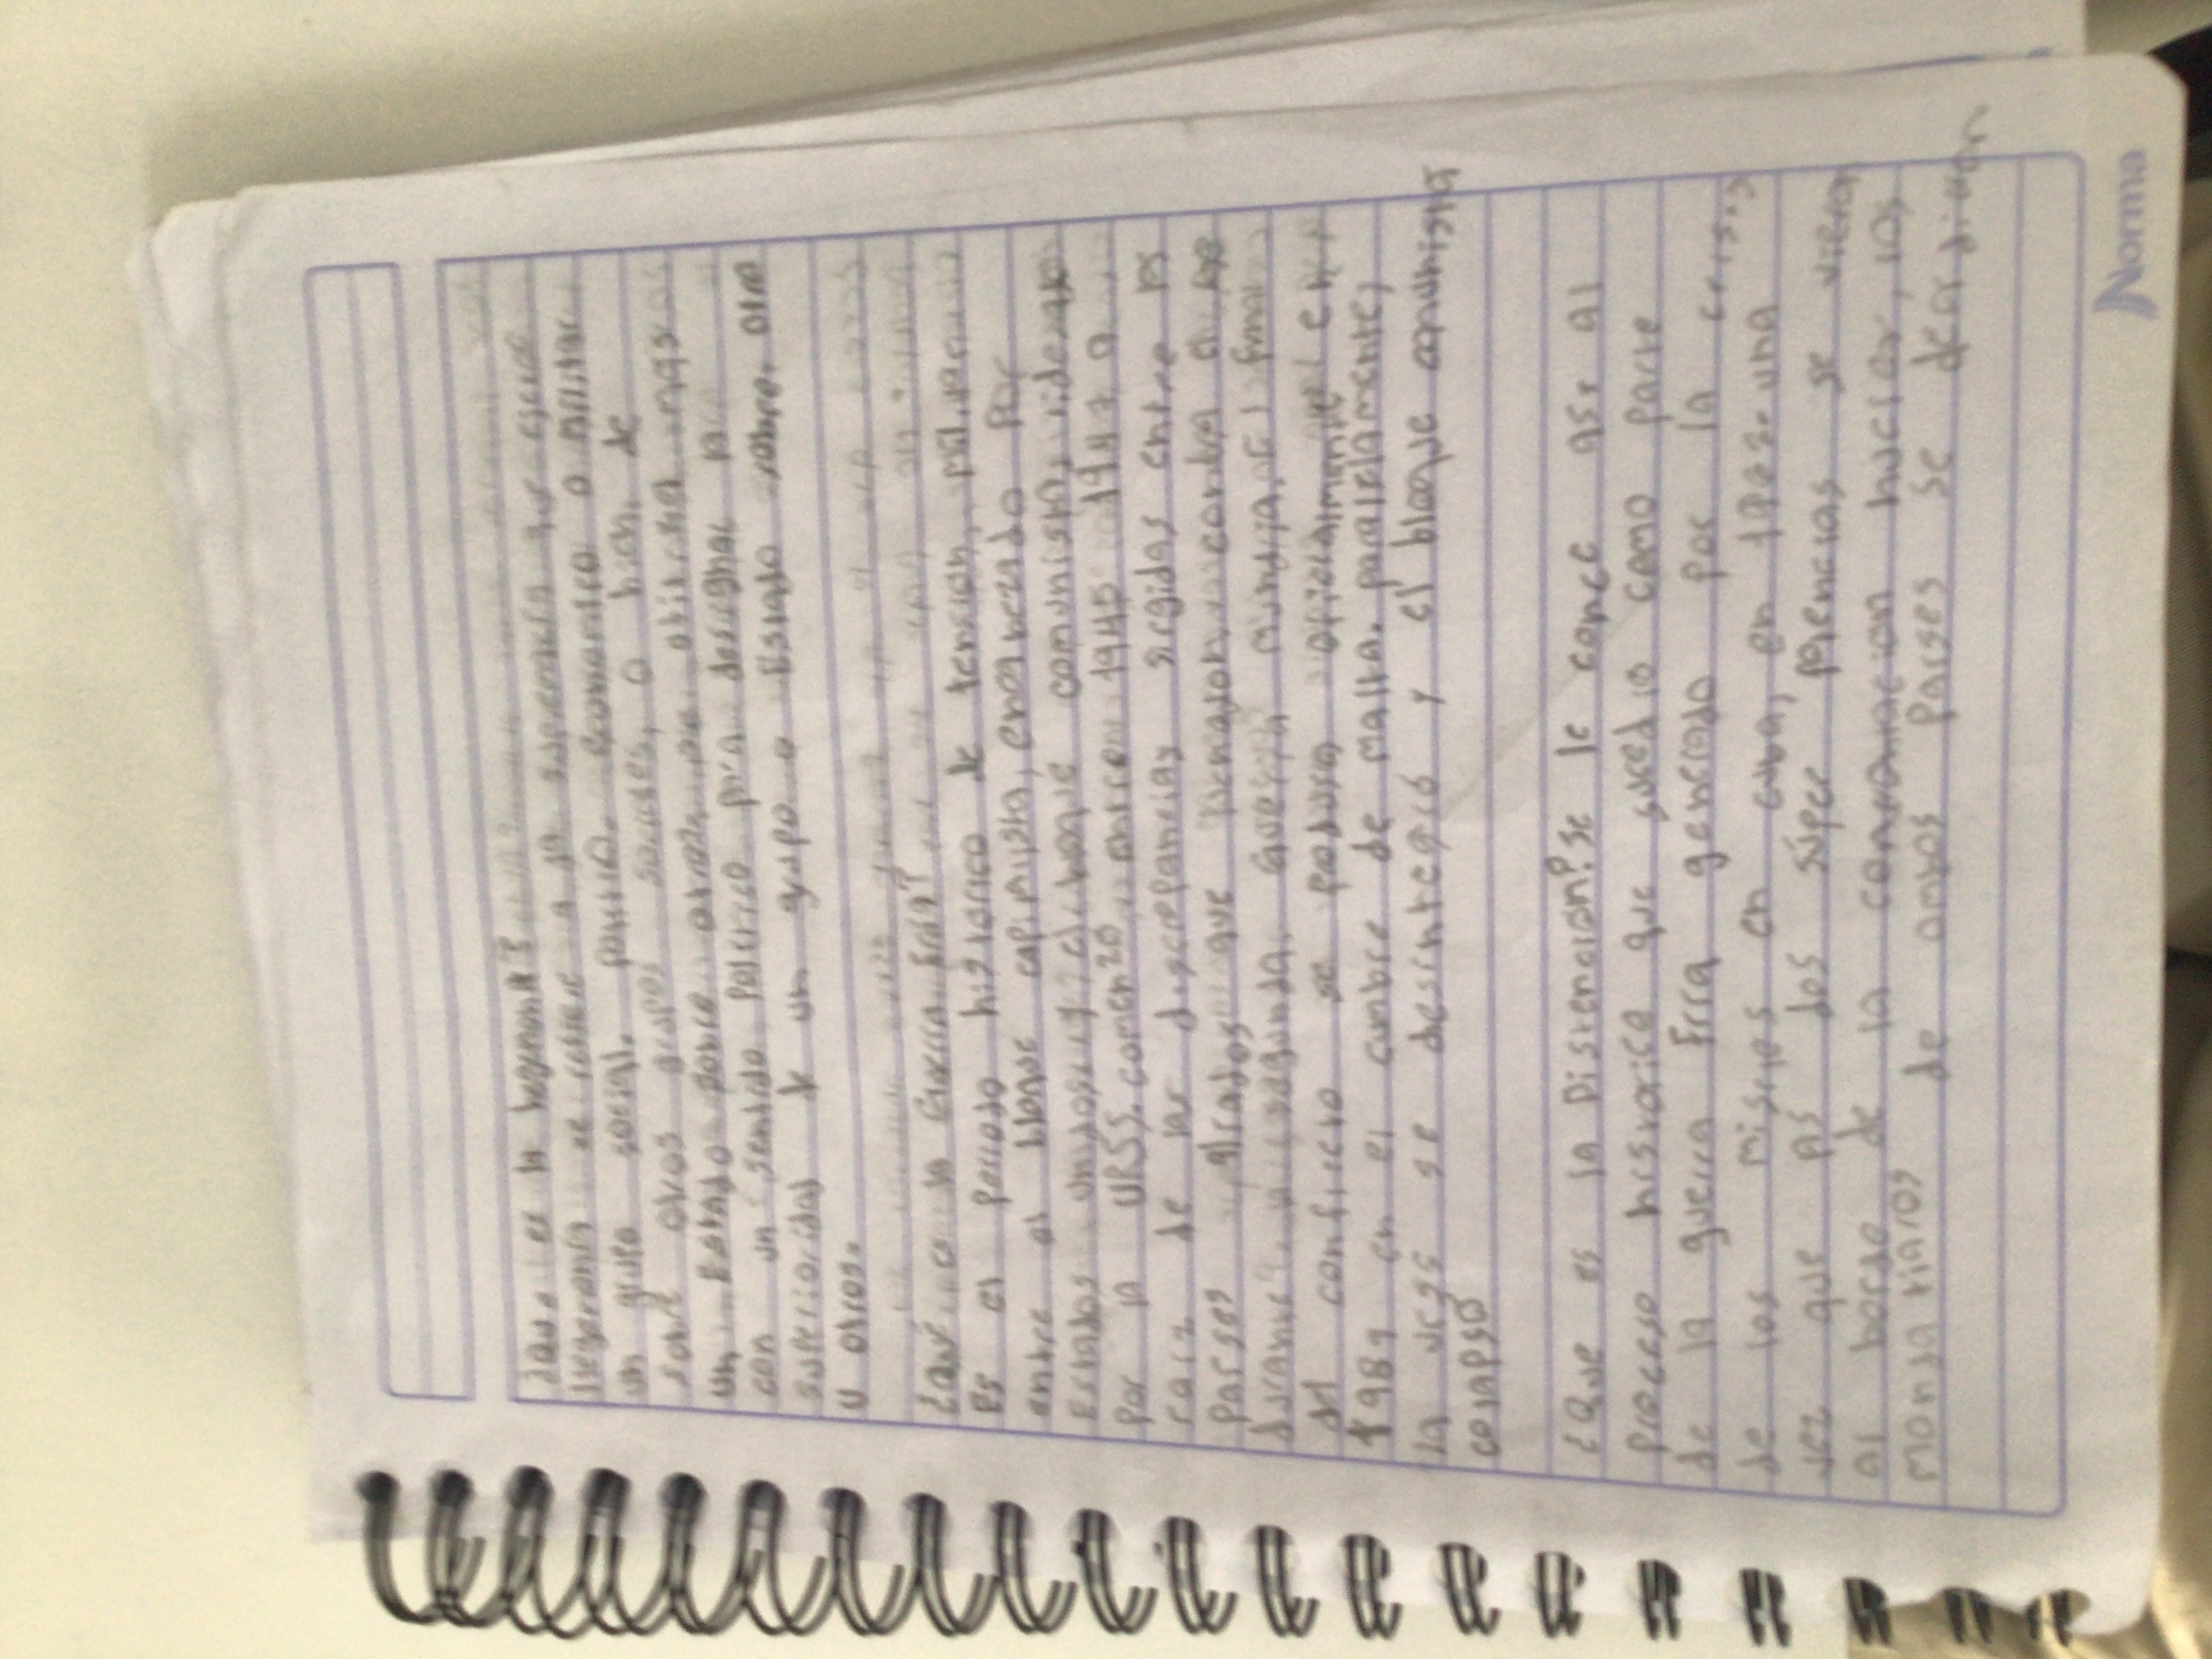 ¿Que es la hegemonia?
hegemonia se refiere a la supremacia que ejerce
un grupo social, politico, economico o militar
sobre otros grupos sociales, o bien, de
un Estado sobre
con un sentido politico para designar la
superioridad de un grupo o Estado sobre otro
u otros.
¿Qué es la Guerra Fría?
Es el periodo histórico de tension militar
entre el bloque capitalista, encabezado por
Estados Unidos y el bloque comunista, liderado
por la URSS. comenzo entre 1945 1947 a
raiz de las discrepancias surgidas entre los
Paises aliados que
durante la segunda Guerra mundial. el final
del conflicto se produjo oficialmente en
1989 en el cumbre de malta. paralelamente,
la urss se desintegró y el bloque comunista
colapso
¿Que es la Distencion? se le conoce así al
proceso historico que sucedio como parte
de la guerra Fria generado por la crisis
de los misiles en cuba, en 1962. una
vez que las dos súper potencias se vieron
al borde de la conflagracion nuclear, los
mandatarios de ambos paises se
Norma